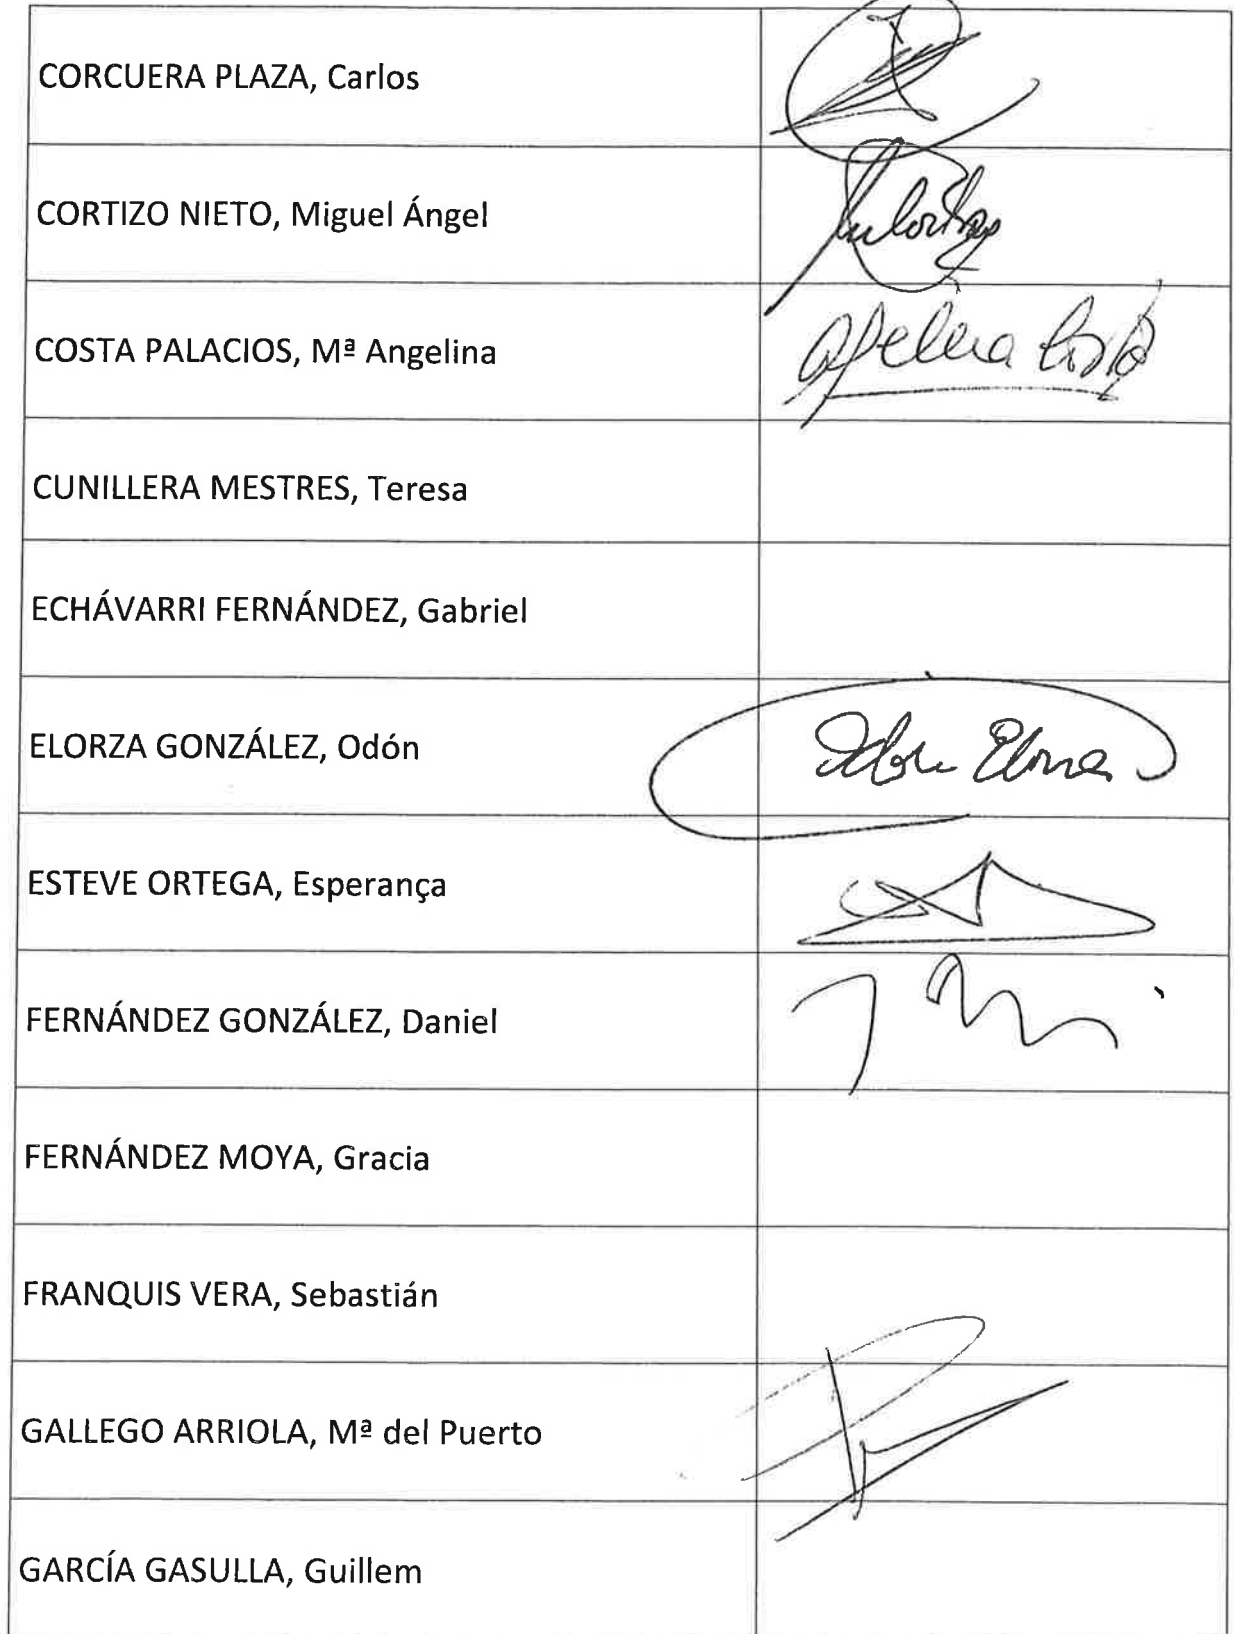 CORCUERA PLAZA, Carlos
CORTIZO NIETO, Miguel Ángel
COSTA PALACIOS, Mª Angelina
CUNILLERA MESTRES, Teresa
ECHÁVARRI FERNÁNDEZ, Gabriel
ELORZA GONZÁLEZ, Odón
Odón Elorza
ESTEVE ORTEGA, Esperança
FERNÁNDEZ GONZÁLEZ, Daniel
FERNÁNDEZ MOYA, Gracia
FRANQUIS VERA, Sebastián
GALLEGO ARRIOLA, Mª del Puerto
GARCÍA GASULLA, Guillem